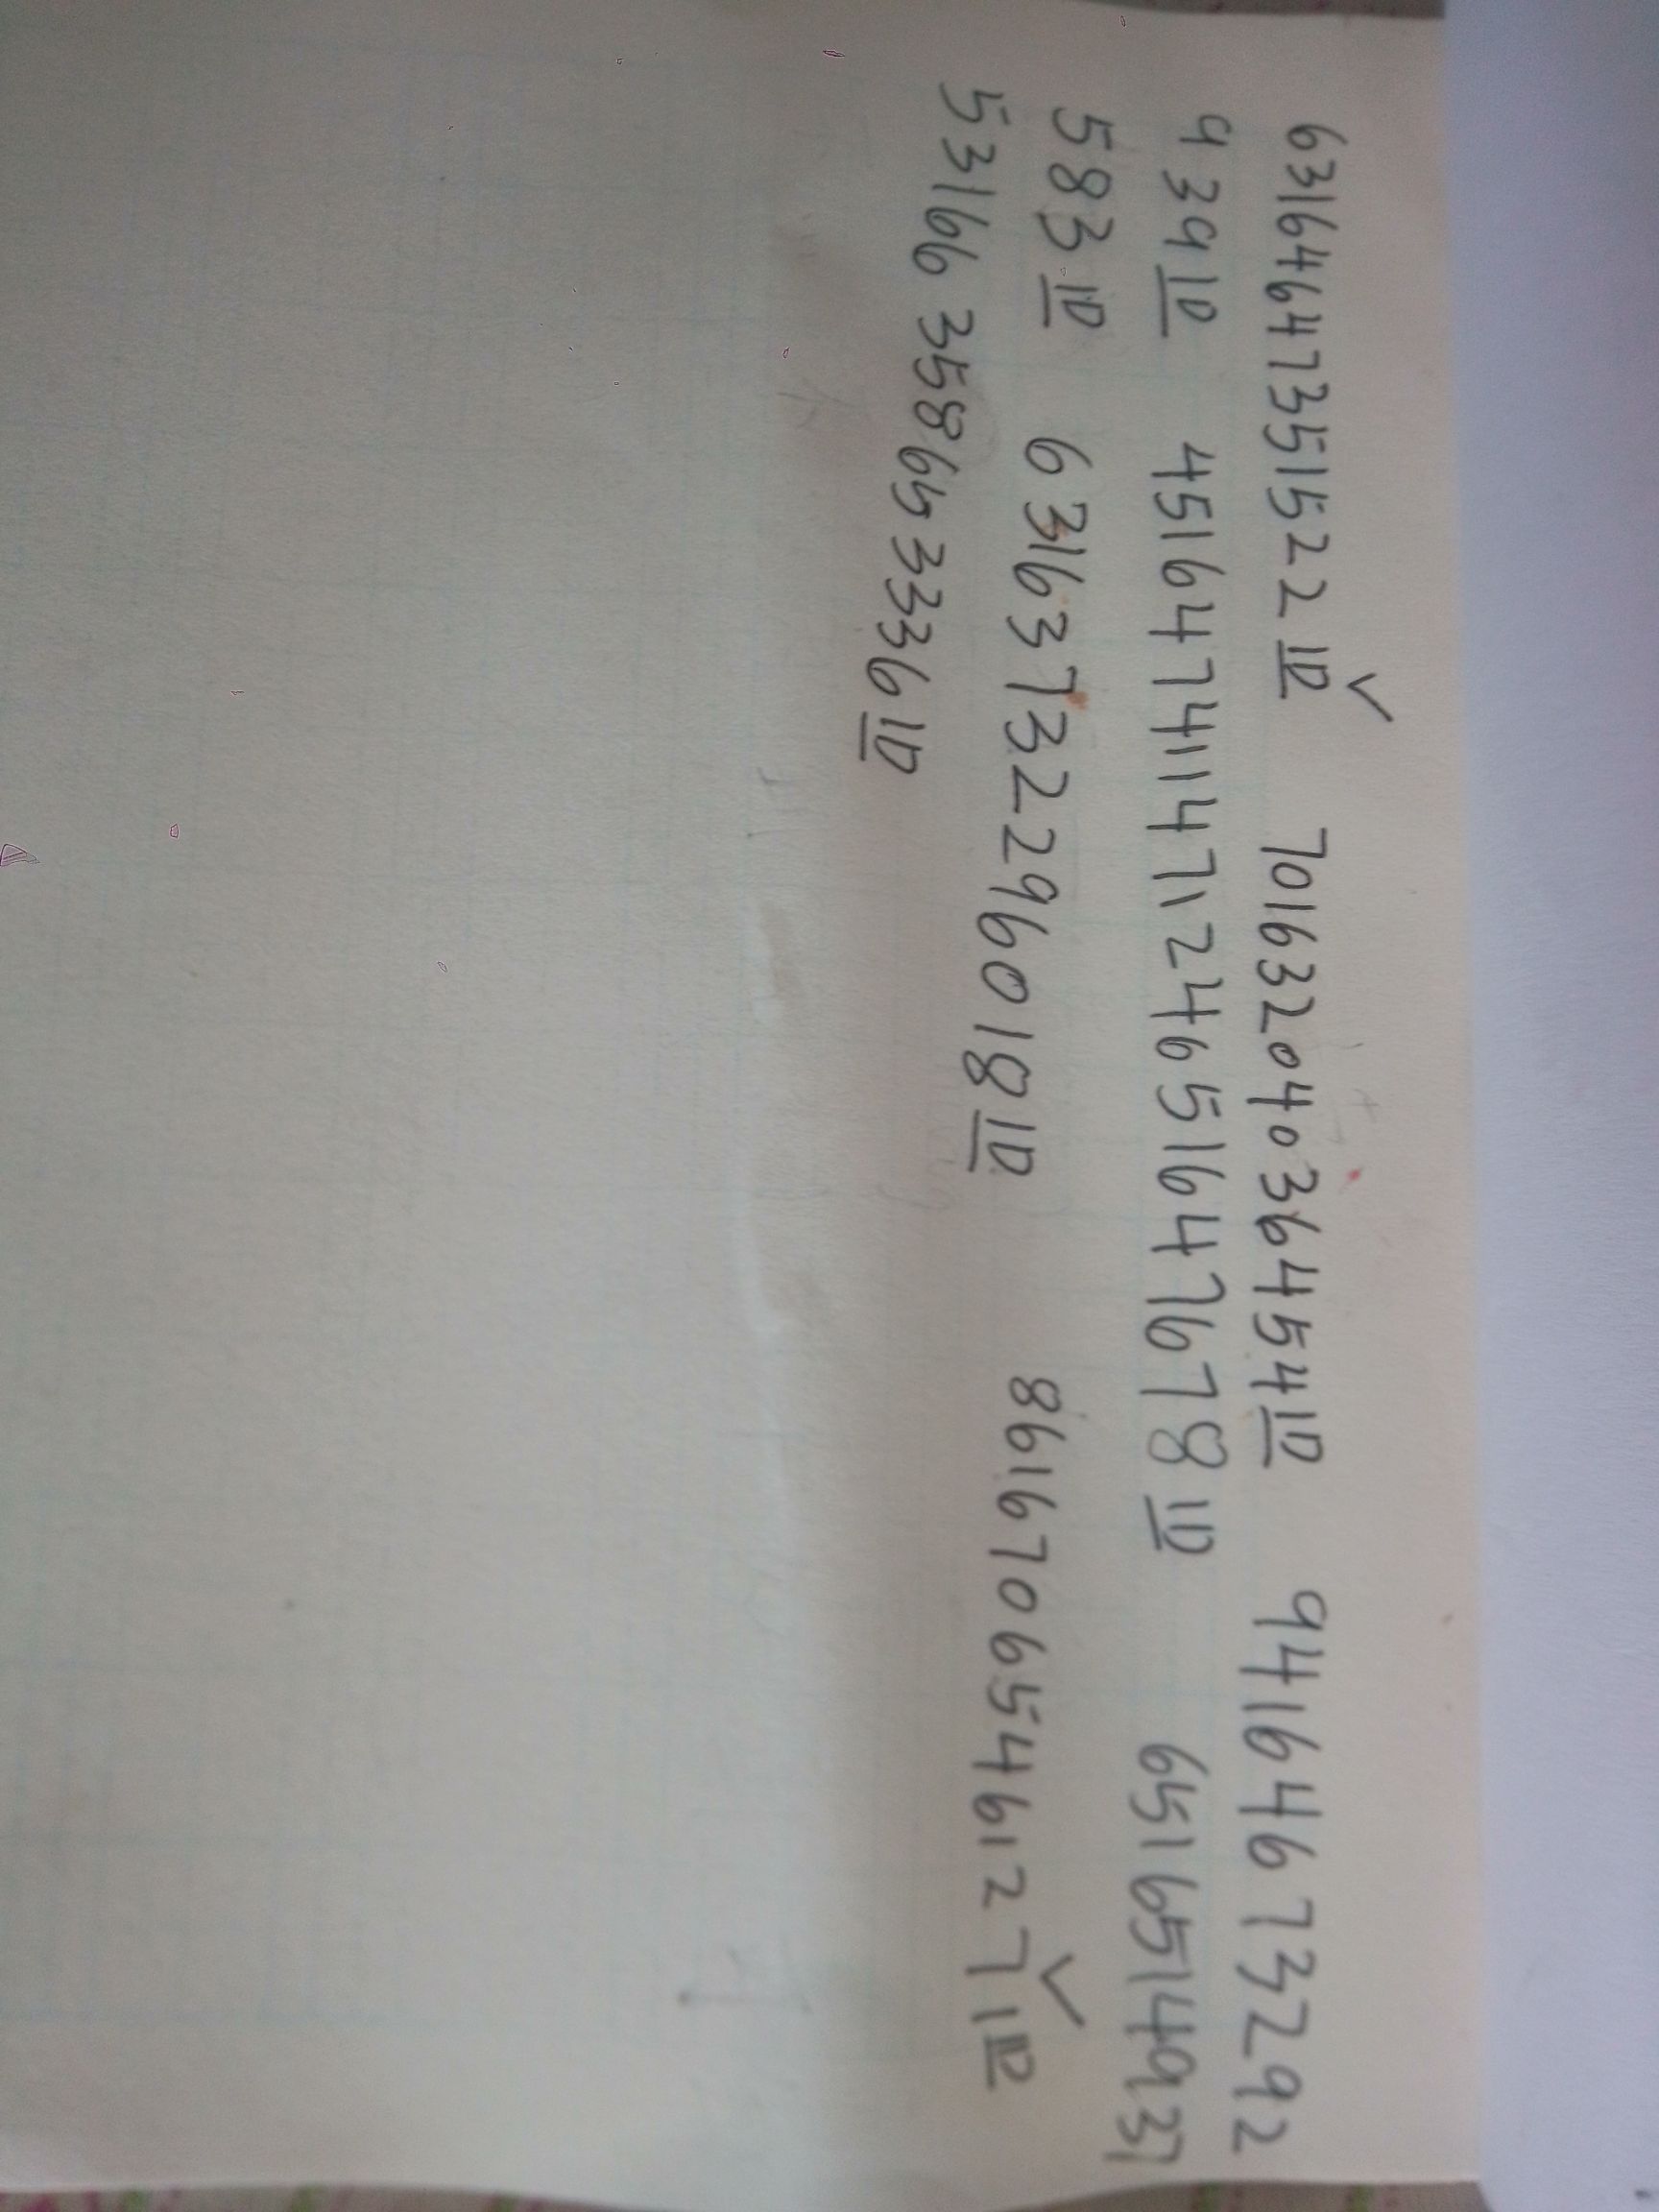 6316464735151522 ID ✓ 701632040364541D 94164673292
9391D 451647411471246516476781D 6516514931
5831D 6316373229601 8 ID 861670654612711D ✓
53166 3586533361D